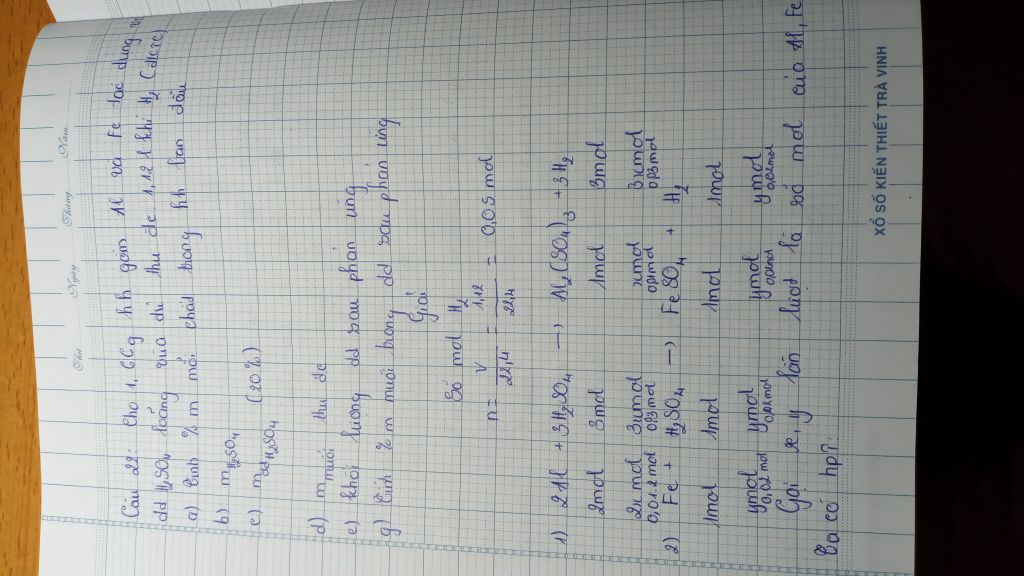 Thứ Ngày Tháng Năm
Câu 22: Cho 1,66g hh gồm Al và Fe tác dụng
dd H2SO4 loãng vừa đủ thu đc 1,12 l khí H2 (đktc)
a) Tính % m mỗi chất trong hh ban đầu
b) mH2SO4
c) mddH2SO4 (20%)
d) mmuối thu đc
e) khối lượng dd sau phản ứng
g) Tính % m muối trong dd sau phản ứng
Giải
Số mol H2
n = V/22,4 = 1,12/22,4 = 0,05 mol
1) 2Al + 3H2SO4 → Al2(SO4)3 + 3H2
2mol 3mol 1mol 3mol
2x mol 3x mol x mol 3x mol
0,012 mol 0,03 mol 0,01 mol 0,03 mol
2) Fe + H2SO4 → FeSO4 + H2
1mol 1mol 1mol 1mol
y mol y mol y mol y mol
0,02 mol 0,02 mol 0,02 mol 0,02 mol
Gọi x, y lần lượt là số mol của Al, Fe
Ta có hp?:
XỔ SỐ KIẾN THIẾT TRÀ VINH